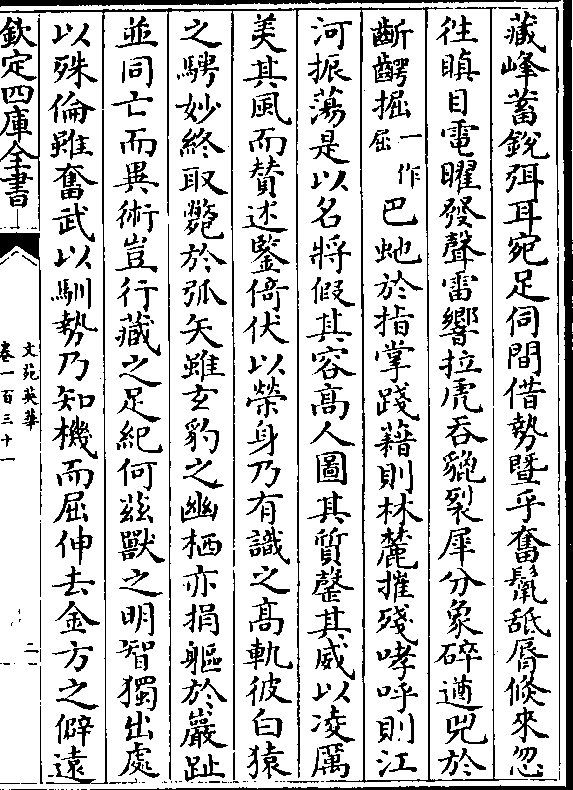 藏峰蓄銳弭耳宛足伺間借勢暨乎奮鬛舐脣倐來忽
徃瞋目電曜發聲雷響拉虎吞貔裂犀分象碎遒兕於
齗齶掘一作屈巴虵於指掌踐藉則林麓摧殘哮呼則江
河振蕩是以名將假其容髙人圖其質鏧其威以凌厲
美其風而賛述鍳倚伏以榮身乃有識之髙軌彼白猿
之騁妙終取斃於弧矢雖玄豹之幽栖亦捐軀於巖趾
並同亡而異術豈行藏之足紀何兹獸之明智獨出處
以殊倫雖奮武以馴勢乃知機而屈伸去金方之僻遠
欽定四庫全書
文苑英華
卷一百三十一
二